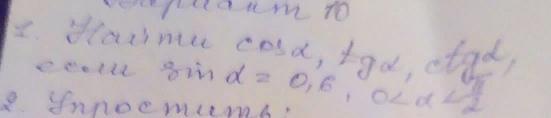 Вариант 10
1. Найти cosα, tgα, ctgα,
если sinα = 0,6, 0<α<π/2
2. Упростить: